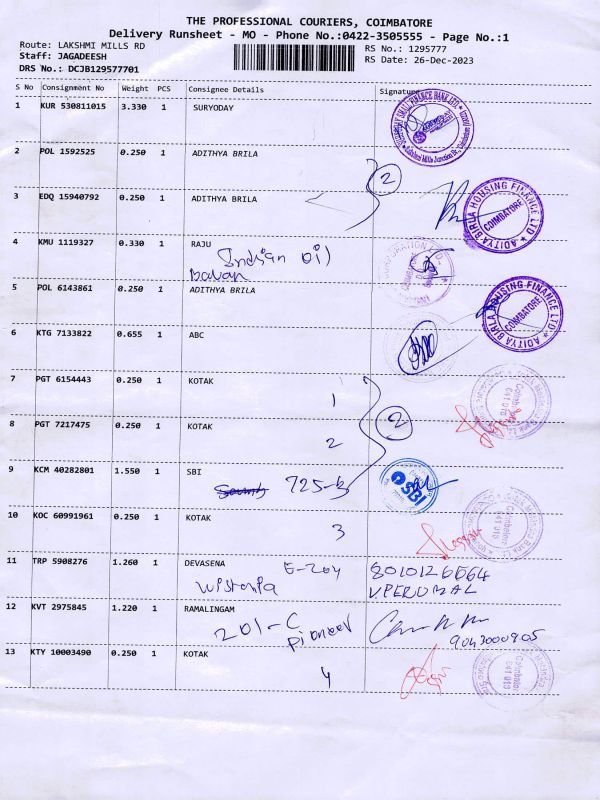 THE PROFESSIONAL COURIERS, COIMBATORE
Delivery Runsheet - MO - Phone No.:0422-3505555 - Page No.:1
Route: LAKSHMI MILLS RD
RS No.: 1295777
Staff: JAGADEESH
RS Date: 26-Dec-2023
DRS No.: DCJB129577701
S No Consignment No Weight PCS Consignee Details Signature
1 KUR 530811015 3.330 1 SURYODAY
2 POL 1592525 0.250 1 ADITHYA BRILA
2
3 EDQ 15940792 0.250 1 ADITHYA BRILA
ADITYA BIRLA HOUSING FINANCE LTD
COIMBATORE
4 KMU 1119327 0.330 1 RAJU
Indian Oil
Bavan
5 POL 6143861 0.250 1 ADITHYA BRILA
ADITYA BIRLA HOUSING FINANCE LTD
COIMBATORE
6 KTG 7133822 0.655 1 ABC
7 PGT 6154443 0.250 1 KOTAK
1
8 PGT 7217475 0.250 1 KOTAK
2
2
9 KCM 40282801 1.550 1 SBI
725-B
SBI
10 KOC 60991961 0.250 1 KOTAK
3
11 TRP 5908276 1.260 1 DEVASENA
E-204 8010126664
Wistoria V PERUMAL
12 KVT 2975845 1.220 1 RAMALINGAM
201-C
Pioneer
9043000905
13 KTY 10003490 0.250 1 KOTAK
4